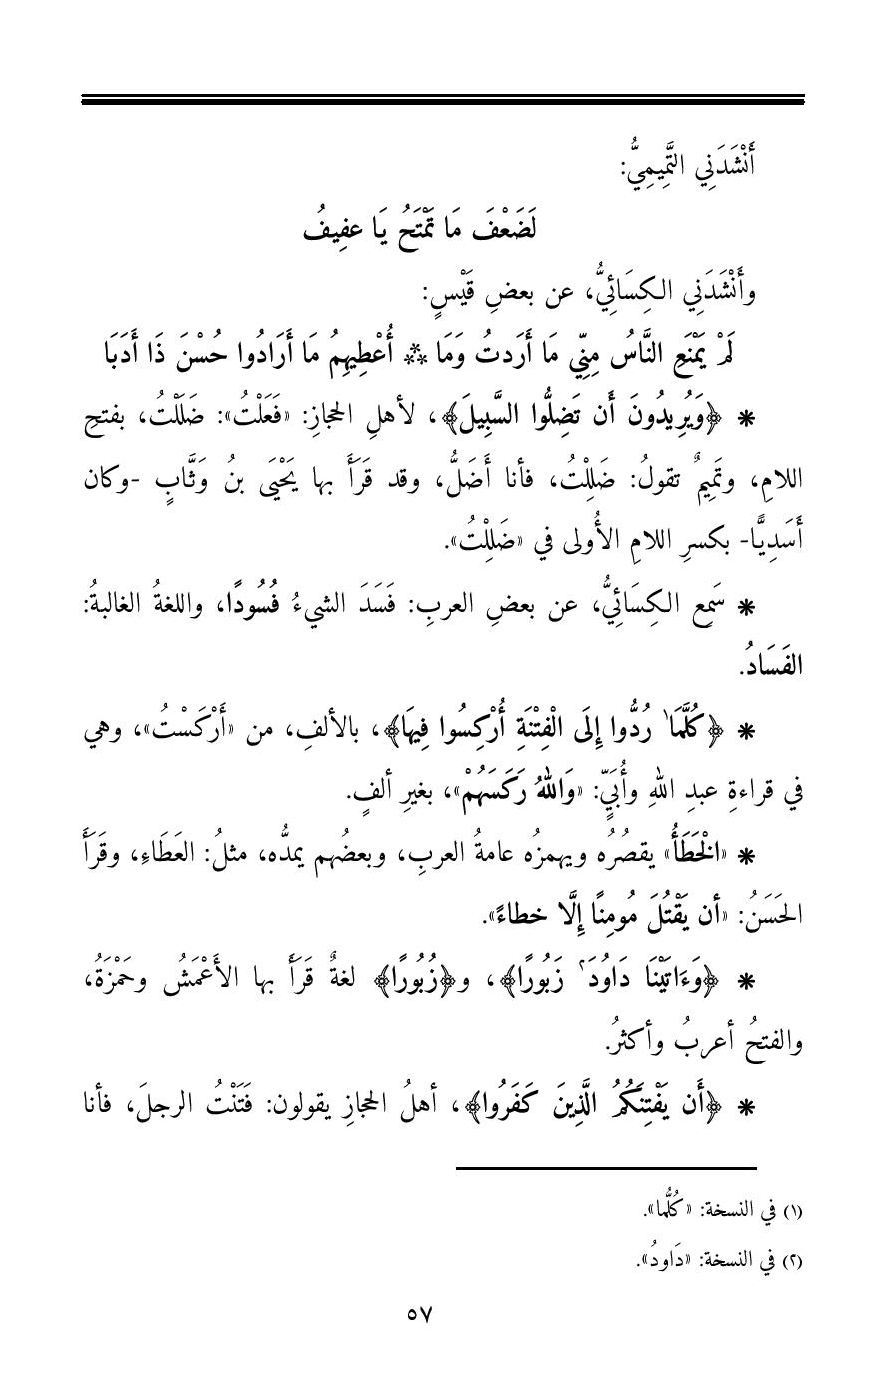 أَنْشَدَنِي التَّمِيمِيُّ:
لَضَعْفَ مَا تَمْتَحُ يَا عفِيفُ
وأَنْشَدَنِي الكِسَائِيُّ، عن بعضِ قَيْسٍ:
لَمْ يَمْنَعِ النَّاسُ مِنِّي مَا أَرَدتُ وَمَا ** أُعْطِيهِمُ مَا أَرَادُوا حُسْنَ ذَا أَدَبَا
* ﴿وَيُرِيدُونَ أَن تَضِلُّوا السَّبِيلَ﴾، لأهلِ الحجازِ: «فَعَلْتُ»: ضَلَلْتُ، بفتحِ
اللامِ، وتَمِيمٌ تقولُ: ضَلِلْتُ، فأنا أَضَلُّ، وقد قَرَأَ بها يَحْيَى بنُ وَثَّابٍ -وكان
أَسَدِيًّا- بكسرِ اللامِ الأُولى في «ضَلِلْتُ».
* سَمِع الكِسَائِيُّ، عن بعضِ العربِ: فَسَدَ الشيءُ فُسُودًا، واللغةُ الغالبةُ:
الفَسَادُ.
* ﴿كُلَّمَا ١ رُدُّوا إِلَى الْفِتْنَةِ أُرْكِسُوا فِيهَا﴾، بالألفِ، من «أَرْكَسْتُ»، وهي
في قراءةِ عبدِ اللهِ وأُبَيٍّ: «وَاللهُ رَكَسَهُمْ»، بغيرِ ألفٍ.
* «الْخَطَأُ» يقصُرُه ويهمزُه عامةُ العربِ، وبعضُهم يمدُّه، مثلُ: العَطَاءِ، وقَرَأَ
الحَسَنُ: «أن يَقْتُلَ مُومِنًا إِلَّا خطاءً».
* ﴿وَءَاتَيْنَا دَاوُدَ ٢ زَبُورًا﴾، و﴿زُبُورًا﴾ لغةٌ قَرَأَ بها الأَعْمَشُ وحَمْزَةُ،
والفتحُ أعربُ وأكثرُ.
* ﴿أَن يَفْتِنَكُمُ الَّذِينَ كَفَرُوا﴾، أهلُ الحجازِ يقولون: فَتَنْتُ الرجلَ، فأنا
(١) في النسخة: «كُلَّما».
(٢) في النسخة: «دَاودُ».
٥٧